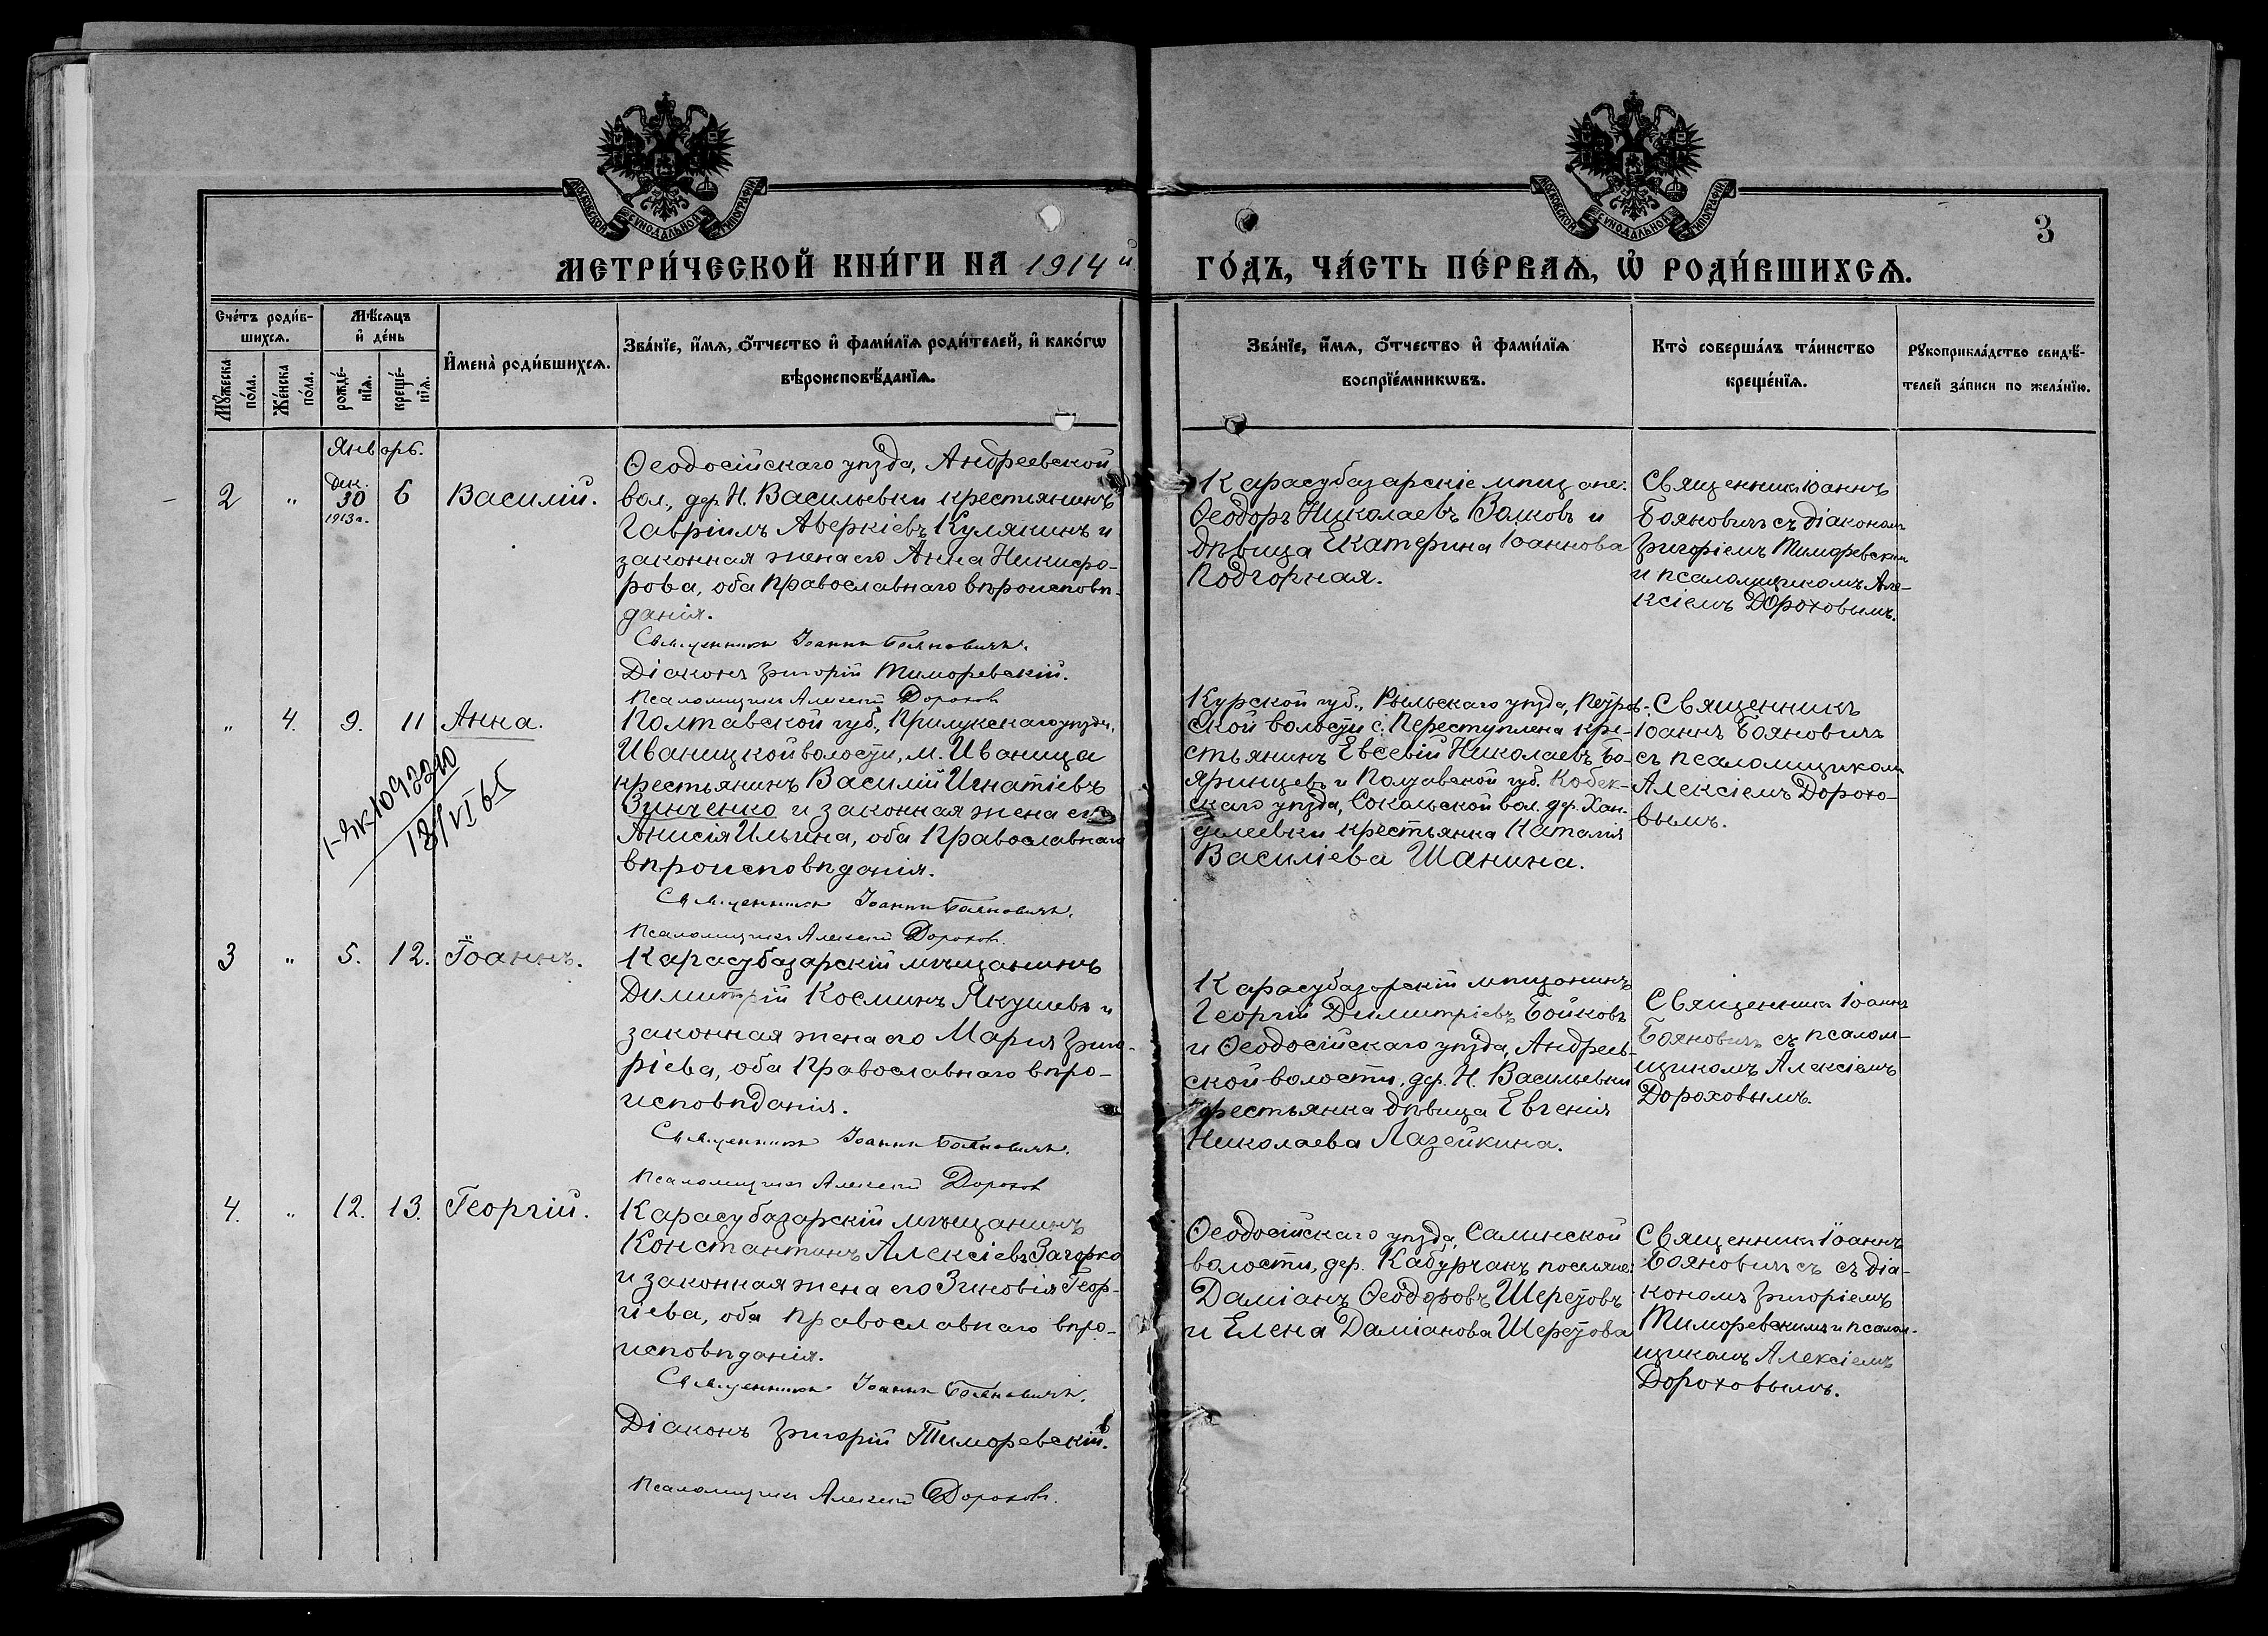 МОСКОВСКОЙ СѴНОДАЛЬНОЙ ТИПОГРАФІИ
МОСКОВСКОЙ СѴНОДАЛЬНОЙ ТИПОГРАФІИ
3
МЕТРИ́ЧЕСКОЙ КНИ́ГИ НА 1914 й ГО́ДЪ, ЧА́СТЬ ПЕ́РВАѦ, Ѡ҆ РОДИ́ВШИХСѦ.
Сче́тъ роди́в-
шихсѧ.
Мѣ́сѧцъ
и҆ де́нь
Мꙋ́жеска по́ла.
Же́нска по́ла.
рожде́-
нїѧ.
креще́-
нїѧ.
И҆мена̀ роди́вшихсѧ.
Зва́нїе, и҆́мѧ, ѻ҆́тчество и҆ фами́лїѧ роди́телей, и҆ како́гѡ
вѣроисповѣ́данїѧ.
Зва́нїе, и҆́мѧ, ѻ҆́тчество и҆ фами́лїѧ
воспрїе́мникѡвъ.
Кто̀ соверша́лъ та́инство
креще́нїѧ.
Рꙋкоприкла́дство свидѣ́-
телей за́писи по жела́нїю.
Январь.
2
"
Дек.
30
1913 г.
6
Василій.
Ѳеодосійскаго уѣзда, Андреевской
вол., дер. Н. Васильевки крестьянинъ
Гавріилъ Аверкіевъ Кулякинъ и
законная жена его Анна Никифо-
рова, оба Православнаго вѣроисповѣ-
данія.
Священникъ Іоаннъ Бояновичъ.
Діаконъ Григорій Тиморевскій.
Псаломщикъ Алексій Дороховъ
Карасубазарскіе мѣщане:
Ѳеодоръ Николаевъ Волковъ и
дѣвица Екатерина Іоаннова
Подгорная.
Священникъ Іоаннъ
Бояновичъ съ діакономъ
Григоріемъ Тиморевскимъ
и псаломщикомъ Але-
ксіемъ Дороховымъ.
"
4.
9.
11
Анна.
13/VI 65
Полтавской губ., Прилукскаго уѣзда,
Иваницкой волости, м. Иваница
крестьянинъ Василій Игнатіевъ
Зинченко и законная жена его
Анисія Ильина, оба Православнаго
вѣроисповѣданія.
Священникъ Іоаннъ Бояновичъ.
Псаломщикъ Алексій Дороховъ.
Курской губ., Рыльскаго уѣзда, Петров-
ской волости с. Переступлена кре-
стьянинъ Евсевій Николаевъ Бо-
яринцевъ и Полтавской губ. Кобек-
скаго уѣзда, Сокольской вол. дер. Хан-
делеевки крестьянка Наталія
Василіева Шанина.
Священникъ
Іоаннъ Бояновичъ
съ псаломщикомъ
Алексіемъ Дорохо-
вымъ.
3
"
5.
12.
Іоаннъ.
Карасубазарскій мѣщанинъ
Димитрій Косминъ Якушевъ и
законная жена его Марія Григо-
ріева, оба Православнаго вѣро-
исповѣданія.
Священникъ Іоаннъ Бояновичъ.
Псаломщикъ Алексій Дороховъ
Карасубазарскій мѣщанинъ
Георгій Димитріевъ Бойковъ
и Ѳеодосійскаго уѣзда, Андреев-
ской волости, дер. Н. Васильевки
крестьянка дѣвица Евгенія
Николаева Лазейкина.
Священникъ Іоаннъ
Бояновичъ съ псалом-
щикомъ Алексіемъ
Дороховымъ.
4.
"
12.
13.
Георгій.
Карасубазарскій мѣщанинъ
Константинъ Алексіевъ Загорко
и законная жена его Зиновія Геор-
гіева, оба Православнаго вѣро-
исповѣданія.
Священникъ Іоаннъ Бояновичъ.
Діаконъ Григорій Тиморевскій.
Псаломщикъ Алексій Дороховъ.
Ѳеодосійскаго уѣзда, Салынской
волости, дер. Кабурчакъ поселяне:
Даміанъ Ѳеодоровъ Шеретовъ
и Елена Даміанова Шеретова
Священникъ Іоаннъ
Бояновичъ съ съ діа-
кономъ Григоріемъ
Тиморевскимъ и псалом-
щикомъ Алексіемъ
Дороховымъ.